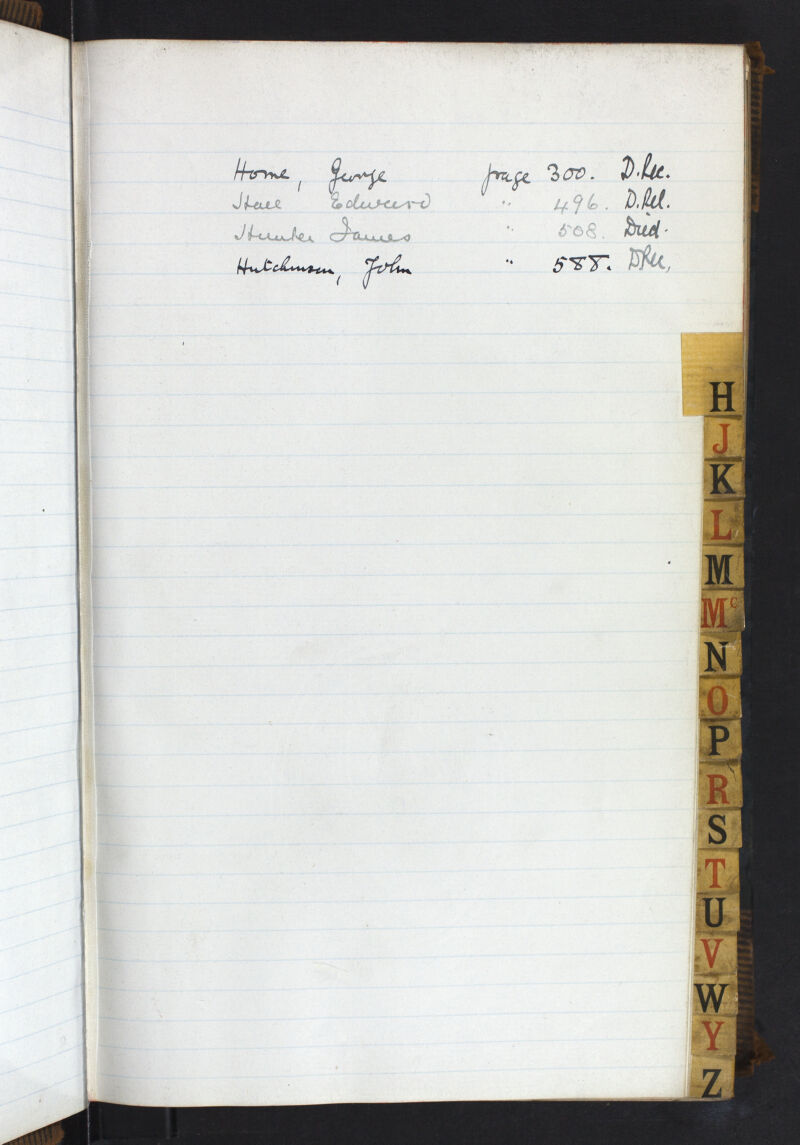 Home, George page 300. D. Rec.
Hall Edward " 496. D. Rel.
Hunter James " 508. Died.
Hutchinson, John " 588. D Rec.
H
J
K
L
M
Mc
N
O
P
R
S
T
U
V
W
Y
Z